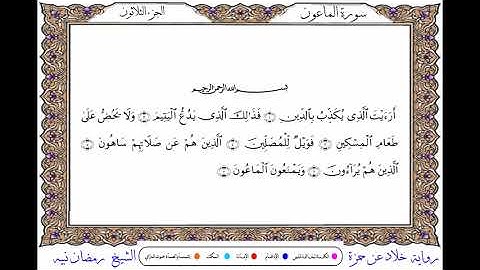 سورة الماعون
الجزء الثلاثون
بسم الله الرحمن الرحيم
أَرَءَيْتَ ٱلَّذِى يُكَذِّبُ بِٱلدِّينِ ۝ فَذَٰلِكَ ٱلَّذِى يَدُعُّ ٱلْيَتِيمَ ۝ وَلَا يَحُضُّ عَلَىٰ
طَعَامِ ٱلْمِسْكِينِ ۝ فَوَيْلٌ لِّلْمُصَلِّينَ ۝ ٱلَّذِينَ هُمْ عَن صَلَاتِهِمْ سَاهُونَ ۝
ٱلَّذِينَ هُمْ يُرَآءُونَ ۝ وَيَمْنَعُونَ ٱلْمَاعُونَ ۝
رواية خلاد عن حمزة
الشيخ رمضان نبيه